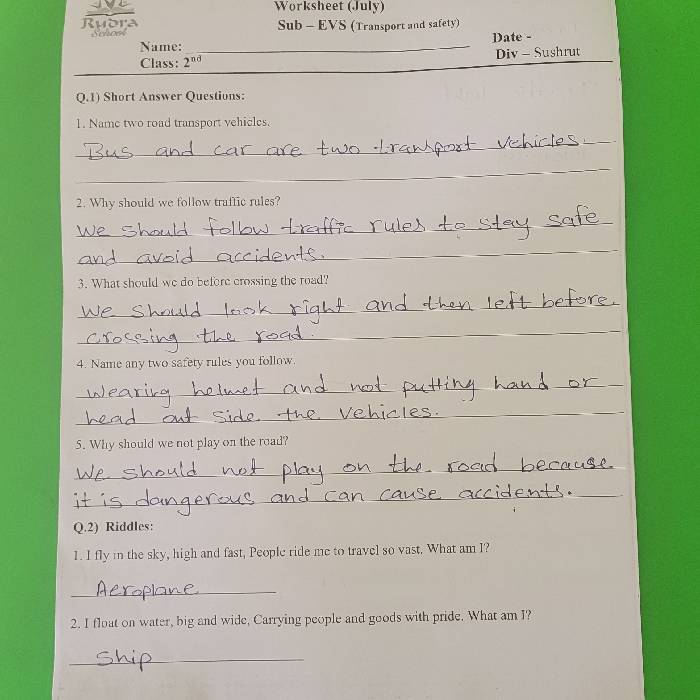 Rudra
School
Worksheet (July)
Sub – EVS (Transport and safety)
Name:
Date -
Class: 2nd
Div – Sushrut
Q.1) Short Answer Questions:
1. Name two road transport vehicles.
Bus and car are two transport vehicles.
2. Why should we follow traffic rules?
We should follow traffic rules to stay safe
and avoid accidents.
3. What should we do before crossing the road?
We should look right and then left before
crossing the road.
4. Name any two safety rules you follow.
Wearing helmet and not putting hand or
head out side the vehicles.
5. Why should we not play on the road?
We should not play on the road because
it is dangerous and can cause accidents.
Q.2) Riddles:
1. I fly in the sky, high and fast, People ride me to travel so vast. What am I?
Aeroplane
2. I float on water, big and wide, Carrying people and goods with pride. What am I?
Ship